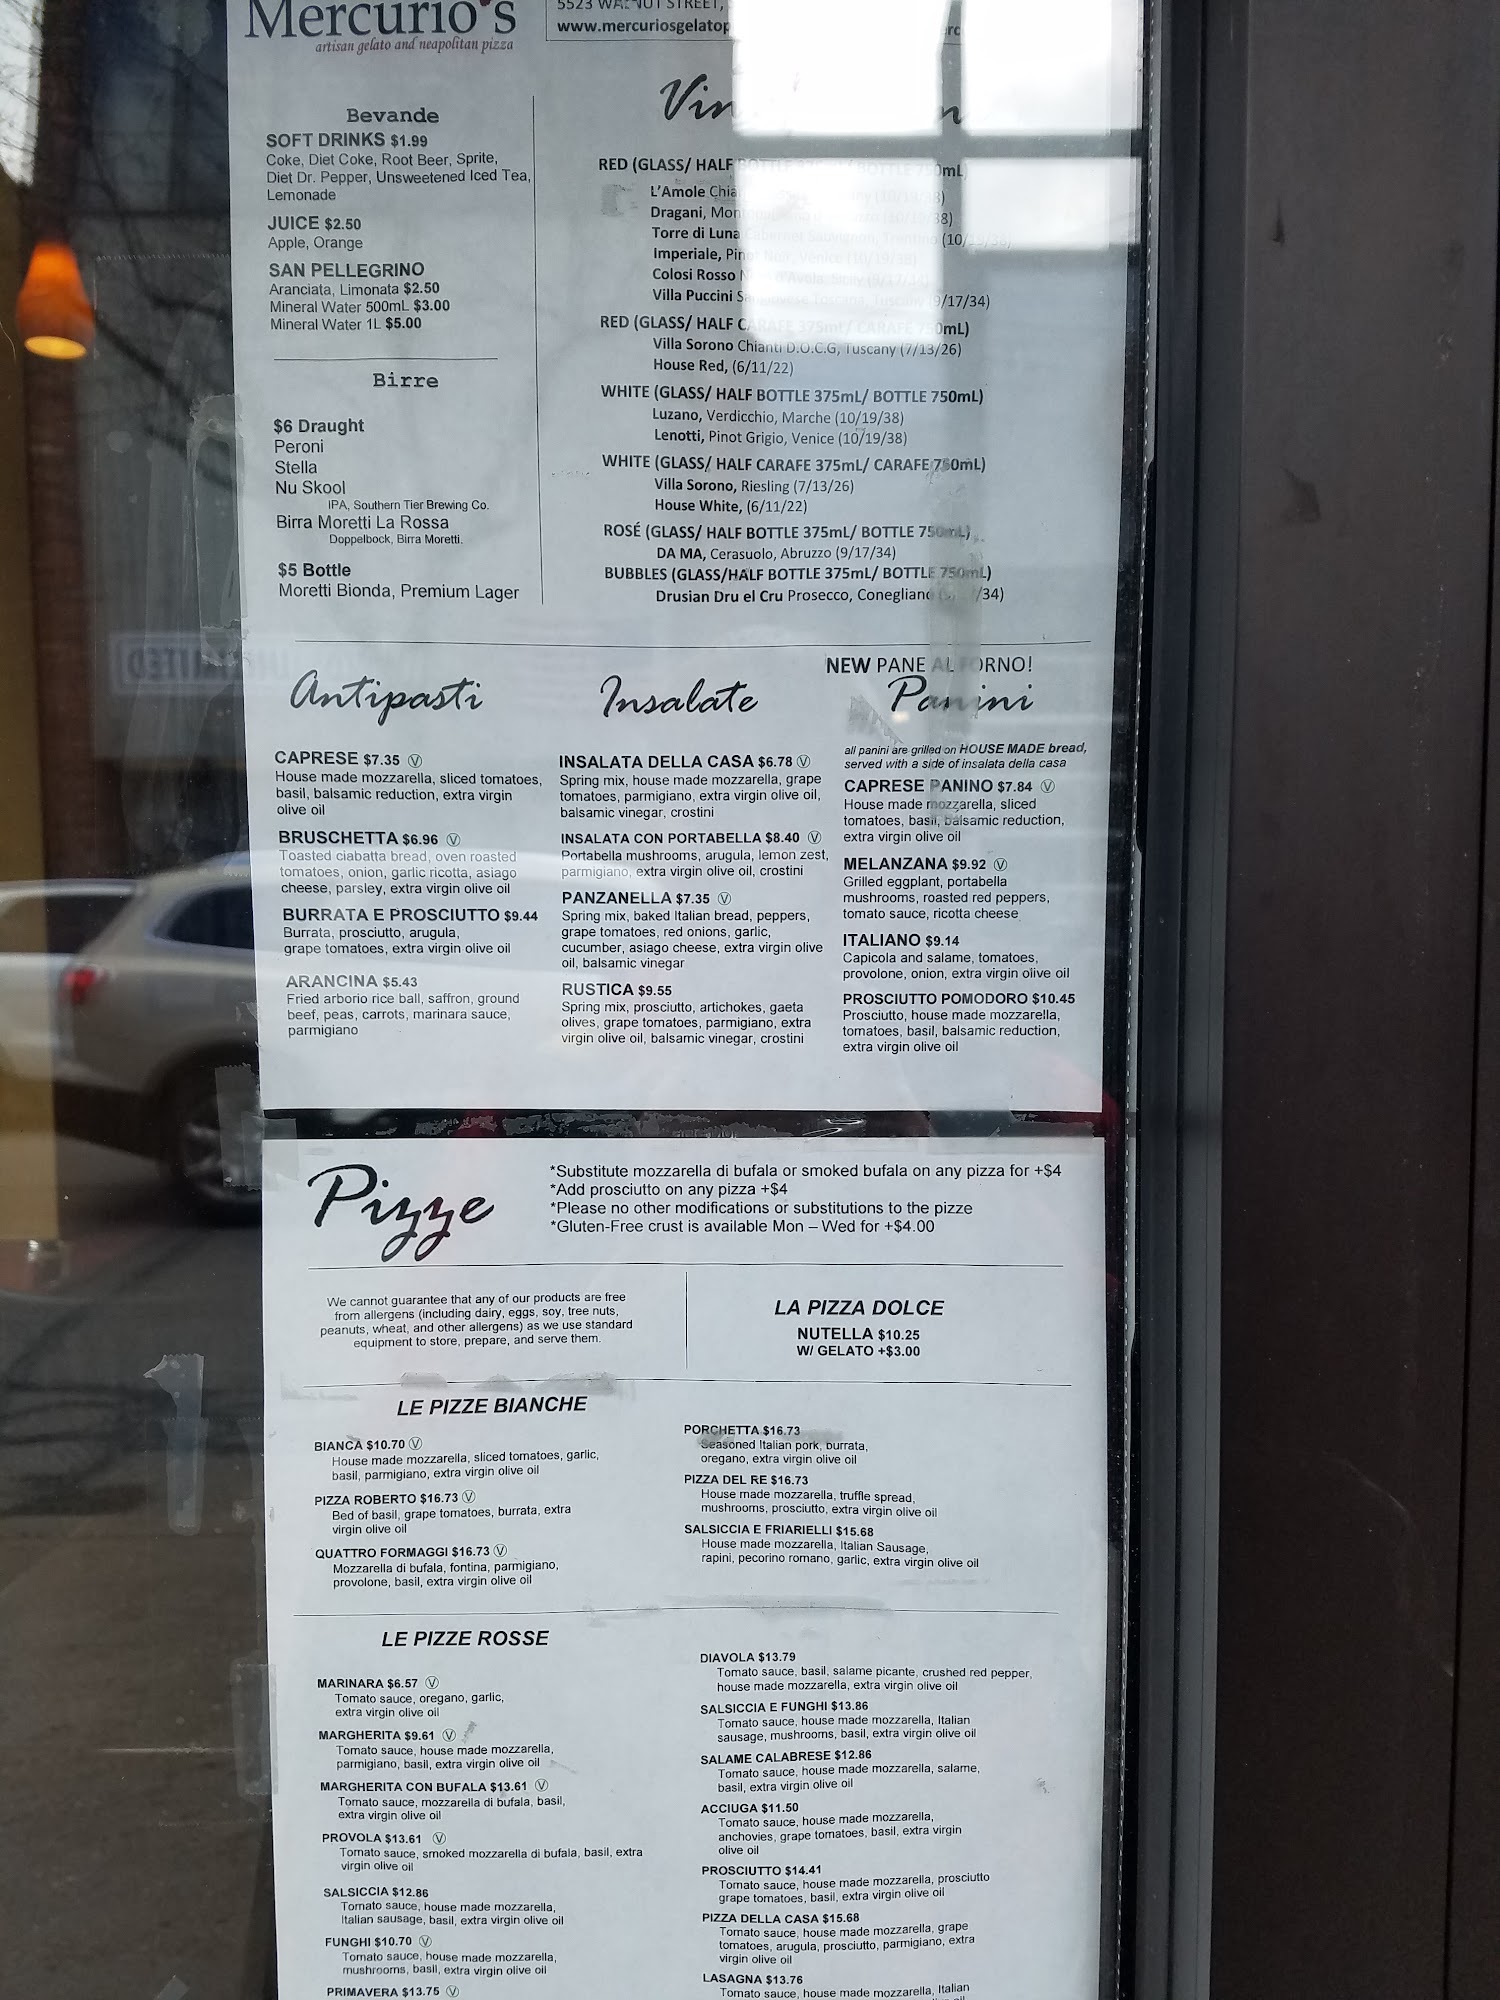 Mercurio's
artisan gelato and neapolitan pizza
5523 WALNUT STREET,
www.mercuriosgelatop
Bevande
SOFT DRINKS $1.99
Coke, Diet Coke, Root Beer, Sprite,
Diet Dr. Pepper, Unsweetened Iced Tea,
Lemonade
JUICE $2.50
Apple, Orange
SAN PELLEGRINO
Aranciata, Limonata $2.50
Mineral Water 500mL $3.00
Mineral Water 1L $5.00
Birre
$6 Draught
Peroni
Stella
Nu Skool
IPA, Southern Tier Brewing Co.
Birra Moretti La Rossa
Doppelbock, Birra Moretti.
$5 Bottle
Moretti Bionda, Premium Lager
RED (GLASS/ HALF BOTTLE 375mL/ BOTTLE 750mL)
L'Amole (10/19/38)
Dragani, (10/19/38)
Torre di Luna Cabernet Sauvignon, Trentino (10/19/38)
Imperiale, Pinot Noir, Venice (10/19/38)
Colosi Rosso Nero d'Avola, Sicily (9/17/34)
Villa Puccini Sangiovese Toscana, Tuscany (9/17/34)
RED (GLASS/ HALF CARAFE 375mL/ CARAFE 750mL)
Villa Sorono Chianti D.O.C.G, Tuscany (7/13/26)
House Red, (6/11/22)
WHITE (GLASS/ HALF BOTTLE 375mL/ BOTTLE 750mL)
Luzano, Verdicchio, Marche (10/19/38)
Lenotti, Pinot Grigio, Venice (10/19/38)
WHITE (GLASS/ HALF CARAFE 375mL/ CARAFE 750mL)
Villa Sorono, Riesling (7/13/26)
House White, (6/11/22)
ROSÉ (GLASS/ HALF BOTTLE 375mL/ BOTTLE 750mL)
DA MA, Cerasuolo, Abruzzo (9/17/34)
BUBBLES (GLASS/HALF BOTTLE 375mL/ BOTTLE 750mL)
Drusian Dru el Cru Prosecco, Conegliano /34)
Antipasti
CAPRESE $7.35 Ⓥ
House made mozzarella, sliced tomatoes,
basil, balsamic reduction, extra virgin
olive oil
BRUSCHETTA $6.96 Ⓥ
Toasted ciabatta bread, oven roasted
tomatoes, onion, garlic ricotta, asiago
cheese, parsley, extra virgin olive oil
BURRATA E PROSCIUTTO $9.44
Burrata, prosciutto, arugula,
grape tomatoes, extra virgin olive oil
ARANCINA $5.43
Fried arborio rice ball, saffron, ground
beef, peas, carrots, marinara sauce,
parmigiano
Insalate
INSALATA DELLA CASA $6.78 Ⓥ
Spring mix, house made mozzarella, grape
tomatoes, parmigiano, extra virgin olive oil,
balsamic vinegar, crostini
INSALATA CON PORTABELLA $8.40 Ⓥ
Portabella mushrooms, arugula, lemon zest,
parmigiano, extra virgin olive oil, crostini
PANZANELLA $7.35 Ⓥ
Spring mix, baked Italian bread, peppers,
grape tomatoes, red onions, garlic,
cucumber, asiago cheese, extra virgin olive
oil, balsamic vinegar
RUSTICA $9.55
Spring mix, prosciutto, artichokes, gaeta
olives, grape tomatoes, parmigiano, extra
virgin olive oil, balsamic vinegar, crostini
NEW PANE AL FORNO!
Panini
all panini are grilled on HOUSE MADE bread,
served with a side of insalata della casa
CAPRESE PANINO $7.84 Ⓥ
House made mozzarella, sliced
tomatoes, basil, balsamic reduction,
extra virgin olive oil
MELANZANA $9.92 Ⓥ
Grilled eggplant, portabella
mushrooms, roasted red peppers,
tomato sauce, ricotta cheese
ITALIANO $9.14
Capicola and salame, tomatoes,
provolone, onion, extra virgin olive oil
PROSCIUTTO POMODORO $10.45
Prosciutto, house made mozzarella,
tomatoes, basil, balsamic reduction,
extra virgin olive oil
Pizze
*Substitute mozzarella di bufala or smoked bufala on any pizza for +$4
*Add prosciutto on any pizza +$4
*Please no other modifications or substitutions to the pizze
*Gluten-Free crust is available Mon – Wed for +$4.00
We cannot guarantee that any of our products are free
from allergens (including dairy, eggs, soy, tree nuts,
peanuts, wheat, and other allergens) as we use standard
equipment to store, prepare, and serve them.
LA PIZZA DOLCE
NUTELLA $10.25
W/ GELATO +$3.00
LE PIZZE BIANCHE
BIANCA $10.70 Ⓥ
House made mozzarella, sliced tomatoes, garlic,
basil, parmigiano, extra virgin olive oil
PIZZA ROBERTO $16.73 Ⓥ
Bed of basil, grape tomatoes, burrata, extra
virgin olive oil
QUATTRO FORMAGGI $16.73 Ⓥ
Mozzarella di bufala, fontina, parmigiano,
provolone, basil, extra virgin olive oil
PORCHETTA $16.73
Seasoned Italian pork, burrata,
oregano, extra virgin olive oil
PIZZA DEL RE $16.73
House made mozzarella, truffle spread,
mushrooms, prosciutto, extra virgin olive oil
SALSICCIA E FRIARIELLI $15.68
House made mozzarella, Italian Sausage,
rapini, pecorino romano, garlic, extra virgin olive oil
LE PIZZE ROSSE
MARINARA $6.57 Ⓥ
Tomato sauce, oregano, garlic,
extra virgin olive oil
MARGHERITA $9.61 Ⓥ
Tomato sauce, house made mozzarella,
parmigiano, basil, extra virgin olive oil
MARGHERITA CON BUFALA $13.61 Ⓥ
Tomato sauce, mozzarella di bufala, basil,
extra virgin olive oil
PROVOLA $13.61 Ⓥ
Tomato sauce, smoked mozzarella di bufala, basil, extra
virgin olive oil
SALSICCIA $12.86
Tomato sauce, house made mozzarella,
Italian sausage, basil, extra virgin olive oil
FUNGHI $10.70 Ⓥ
Tomato sauce, house made mozzarella,
mushrooms, basil, extra virgin olive oil
PRIMAVERA $13.75 Ⓥ
DIAVOLA $13.79
Tomato sauce, basil, salame picante, crushed red pepper,
house made mozzarella, extra virgin olive oil
SALSICCIA E FUNGHI $13.86
Tomato sauce, house made mozzarella, Italian
sausage, mushrooms, basil, extra virgin olive oil
SALAME CALABRESE $12.86
Tomato sauce, house made mozzarella, salame,
basil, extra virgin olive oil
ACCIUGA $11.50
Tomato sauce, house made mozzarella,
anchovies, grape tomatoes, basil, extra virgin
olive oil
PROSCIUTTO $14.41
Tomato sauce, house made mozzarella, prosciutto
grape tomatoes, basil, extra virgin olive oil
PIZZA DELLA CASA $15.68
Tomato sauce, house made mozzarella, grape
tomatoes, arugula, prosciutto, parmigiano, extra
virgin olive oil
LASAGNA $13.76
Tomato sauce, house made mozzarella, Italian